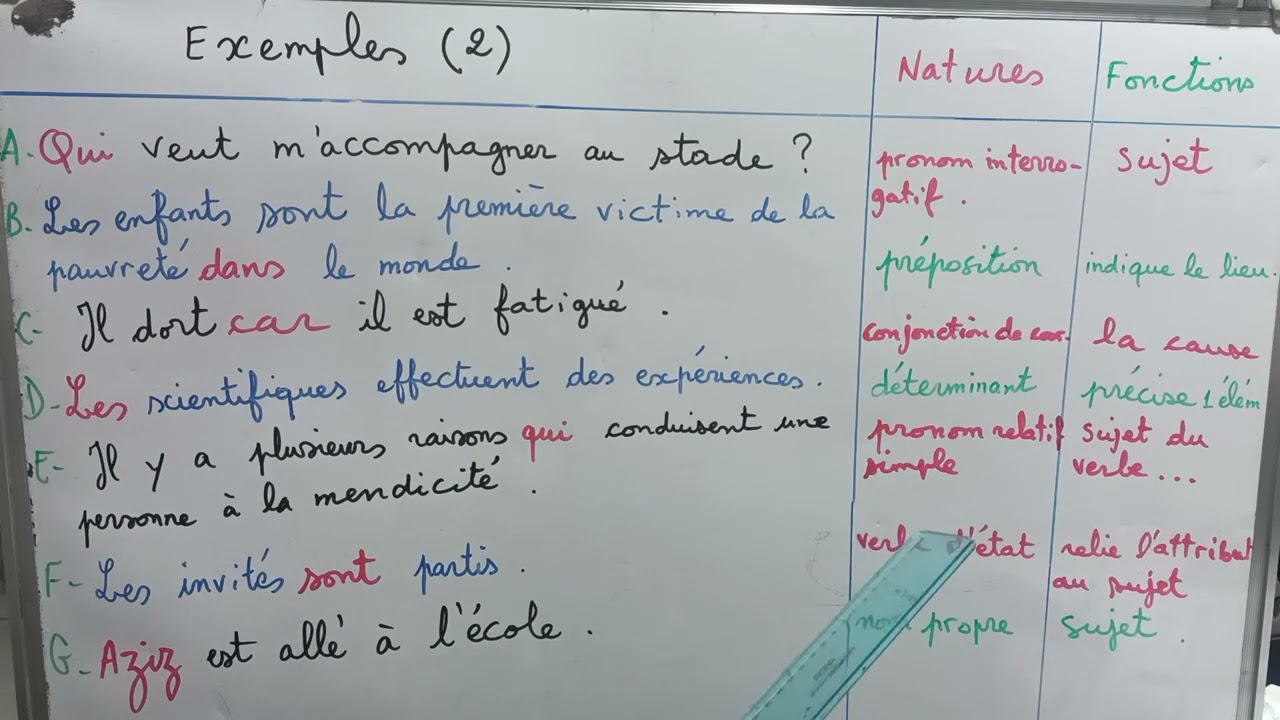 Exemples (2)
Natures
Fonctions
A. Qui veut m'accompagner au stade ?
pronom interro-
gatif.
sujet
B. Les enfants sont la première victime de la
pauvreté dans le monde.
préposition
indique le lieu.
C- Il dort car il est fatigué.
conjonction de coor.
la cause
D- Les scientifiques effectuent des expériences.
déterminant
précise 1 élém
E- Il y a plusieurs raisons qui conduisent une
personne à la mendicité.
pronom relatif
simple
sujet du
verbe...
F- Les invités sont partis.
verbe d'état
relie l'attribut
au sujet
G- Aziz est allé à l'école.
nom propre
sujet.